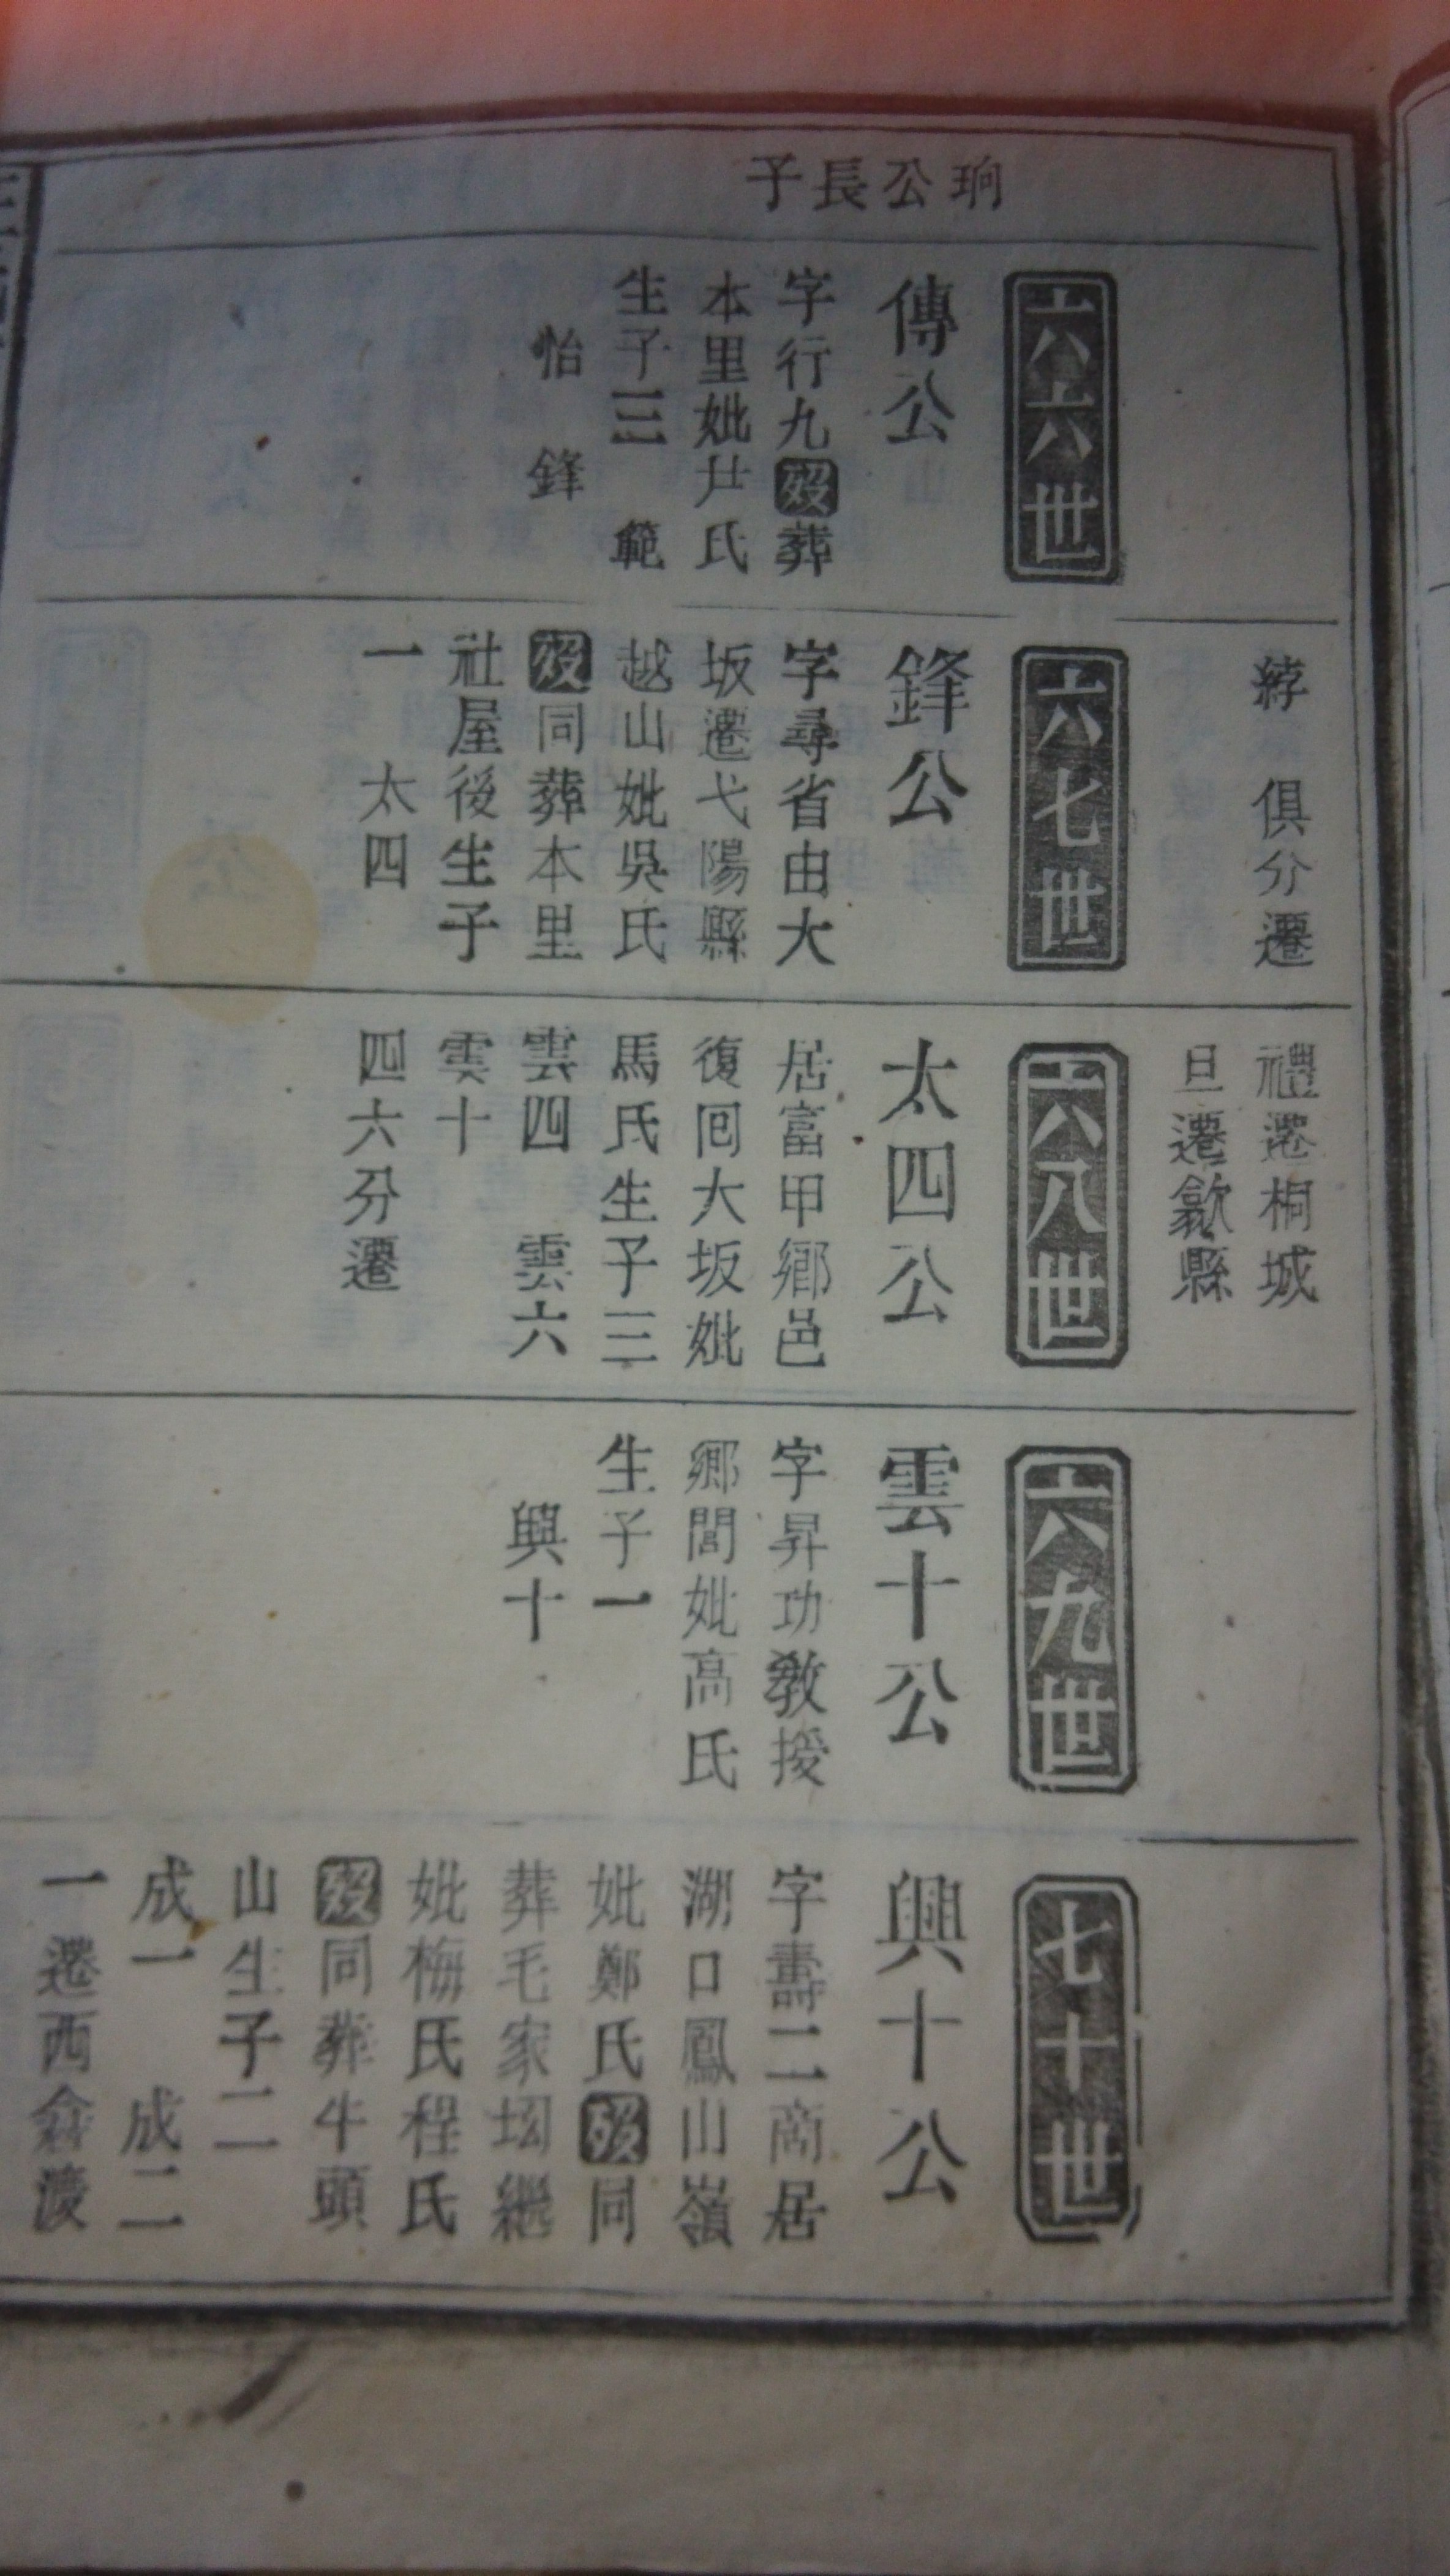 珦公長子
六六世
傳公
字行九歿葬
本里妣廾氏
生子三 範
怡 鋒
綍 俱分遷
六七世
鋒公
字尋省由大
坂遷弋陽縣
越山妣吳氏
歿同葬本里
社屋後生子
一 太四
禮遷桐城
旦遷歙縣
六八世
太四公
居富甲鄉邑
復囘大坂妣
馬氏生子三
雲四 雲六
雲十
四六分遷
六九世
雲十公
字昇功教授
鄉閭妣高氏
生子一
興十
七十世
興十公
字壽二商居
湖口鳳山嶺
妣鄭氏歿同
葬毛家坳繼
妣梅氏程氏
歿同葬牛頭
山生子二
成一 成二
一遷西倉渡